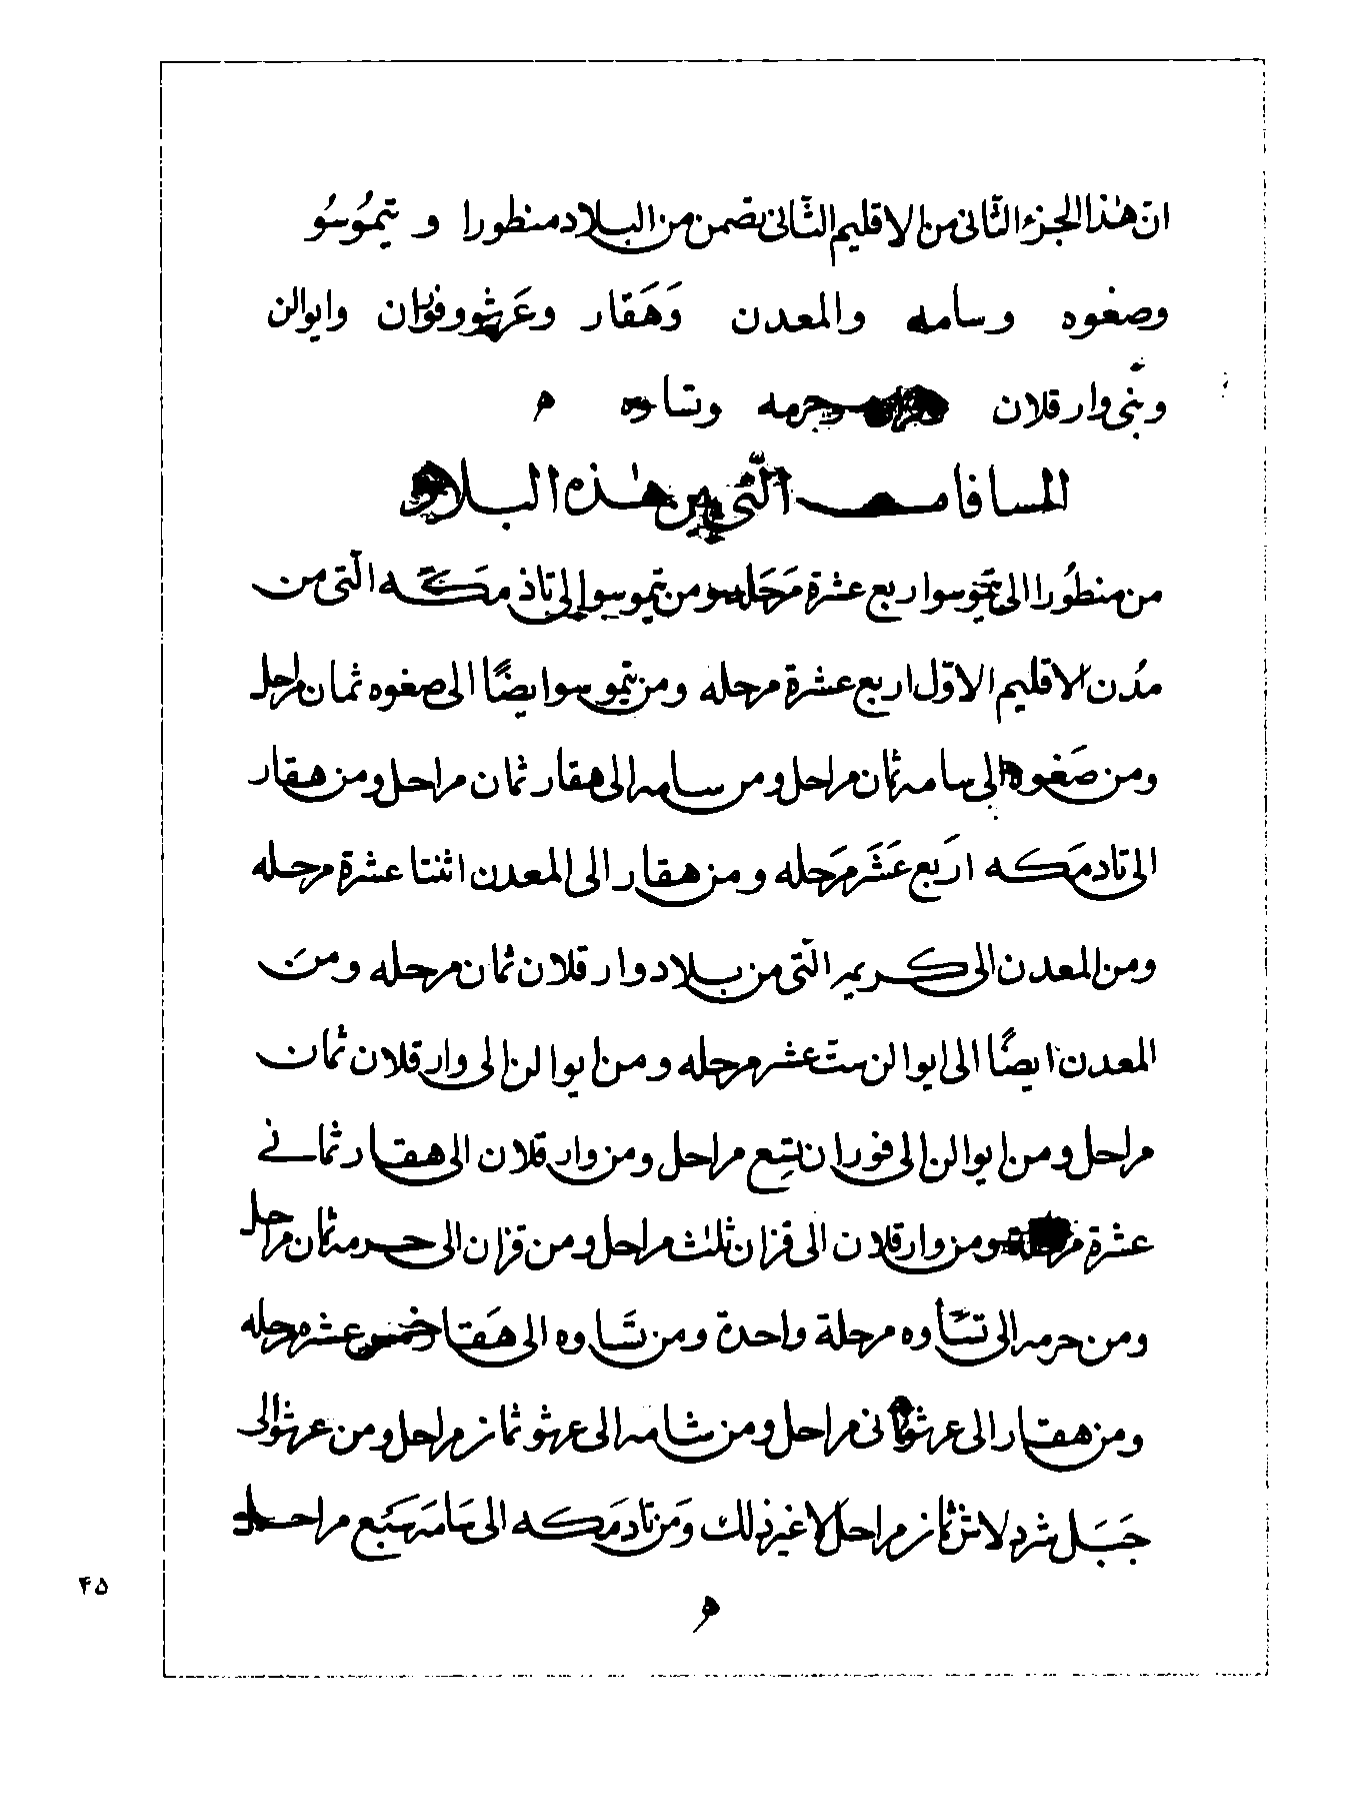 انّ هٰذا الجزء الثّانی من الاقلیم الثّانی تضمن من البلاد منظورا و تیموُسوُ
وصغوه وسامه والمعدن وَهَقَار وعَرشو وفوران وایوالن
وبنّی وارقلان وجرمه وتساوه ه
المسافات الّتی بین هٰذه البلاد
من منطوُرا الی تیموسو اربع عشرة مَرَحَله ومن تیموسو الی تاذ مَکَّه الّتی من
مدُن الاقلیم الاوّل اربع عشرة مرحله ومن تیموسو ایضًا الی صغوه ثمان مراحل
ومن صَغوه الی سامه ثمان مراحل ومن سامه الی هقار ثمان مراحل ومن هقار
الی تادمَکه اربَع عَشَر مَرَحله ومن هقار الی المعدن اثنتا عشرة مرحله
ومن المعدن الی کریم الّتی من بلاد وارقلان ثمان مرحله ومن
المعدن ایضًا الی ایوالن ستّ عشر مرحله ومن ایوالن الی وارقلان ثمان
مراحل ومن ایوالن الی فوران تسِع مراحل ومن وارقلان الی هقار ثمانی
عشرة مرحلة ومن وارقلان الی قزان ثلٰث مراحل ومن قزان الی حرمه ثمان مراحل
ومن حرمه الی تسّاوه مرحلة واحدة ومن تسَّاوه الی هَقار خمس عشره مرحله
ومن هقار الی عرشو ثمانی مراحل ومن شامه الی عرشو ثمان مراحل ومن عرشو الی
جَبَل شرد لانش ثمان مراحل لا غیر ذلك وَمن تادمَکه الی سَامَه سَبَع مراحل
ه
۴۵